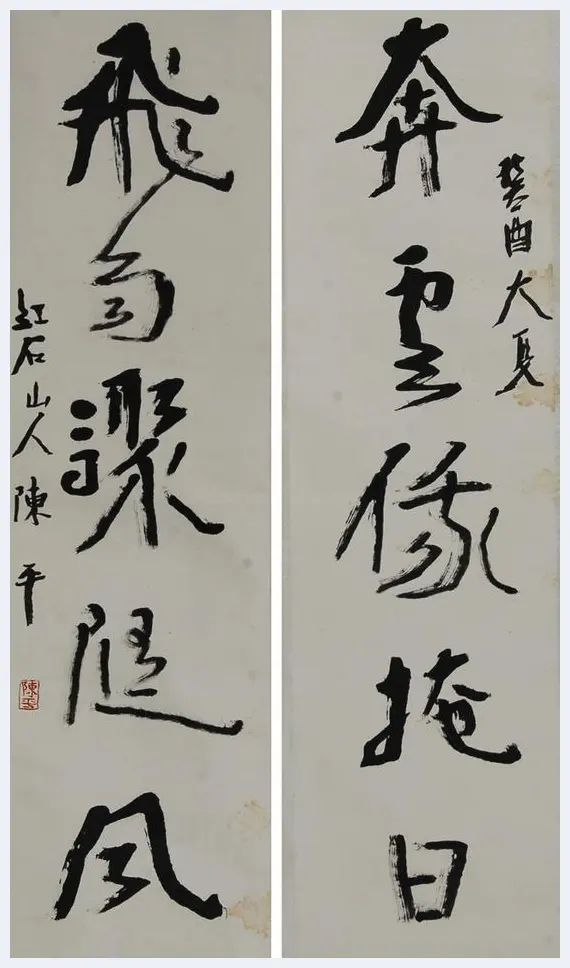 奔雲俄掩日
癸酉大夏
飛雨驟隨風
紅石山人 陳平
陳平